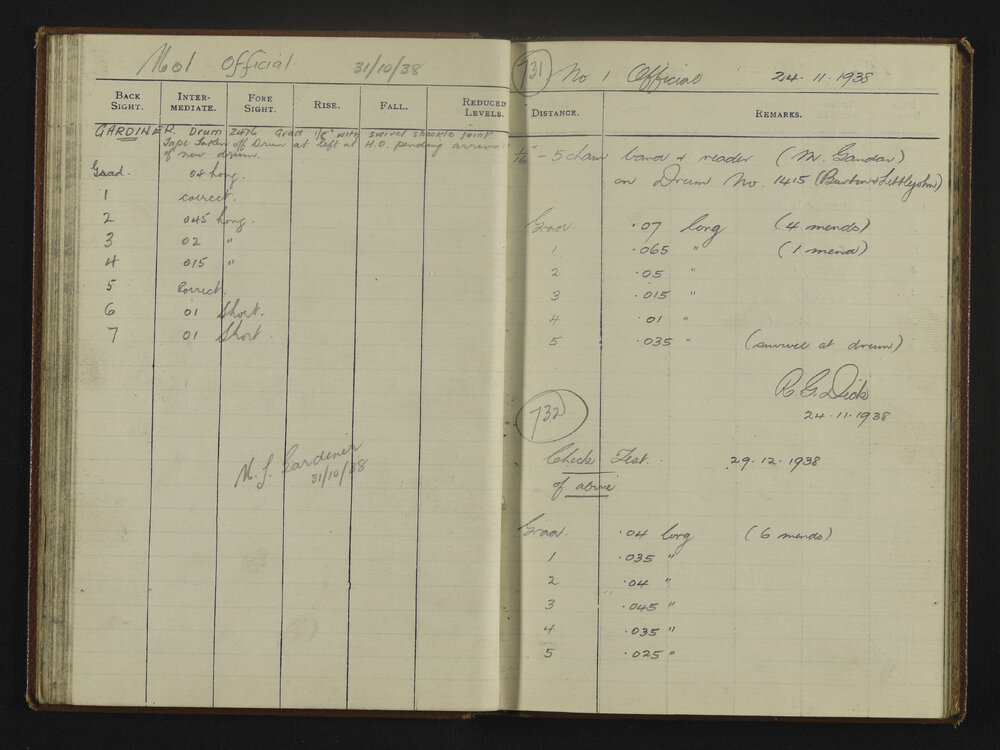 No 1 Official 31/10/38
BACK SIGHT. INTER-MEDIATE. FORE SIGHT. RISE. FALL. REDUCED LEVELS.
GARDINER. Drum 2476 Grad 1/8" with swivel shackle joint.
Tape Taken off Drum at left at H.O. pending arrival
of new drum.
Graad. 04 long.
1 correct.
2 045 long.
3 02 "
4 015 "
5 Correct.
6 01 Short.
7 01 Short.
M. J. Gardiner
31/10/38
731 No 1 Official 24.11.1938
DISTANCE. REMARKS.
1/16" - 5 chain band & reader (Mr. Gandar)
on Drum No. 1415 (Burton & Littlejohn)
Graad. .07 long (4 mends)
1 .065 " (1 mend)
2 .05 "
3 .015 "
4 .01 "
5 .035 " (swivel at drum)
R. G. Dick
24.11.1938
732
Check Test. 29.12.1938
of above
Graad. .04 long (6 mends)
1 .035 "
2 .04 "
3 .045 "
4 .035 "
5 .025 "